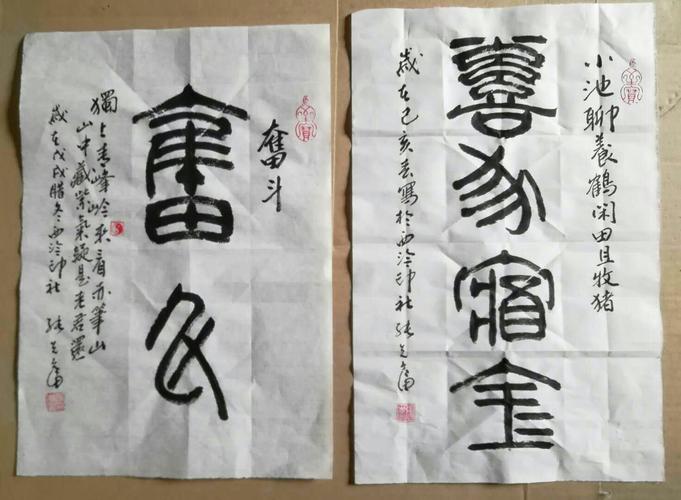 奮斗
奮斗
獨上秀峰岭来看亦筆山
山中藏紫氣疑是老君還
歲在戊戌腊冬西泠印社
小池聊養鶴闲田且牧猪
金
歲在己亥春寫於西泠印社